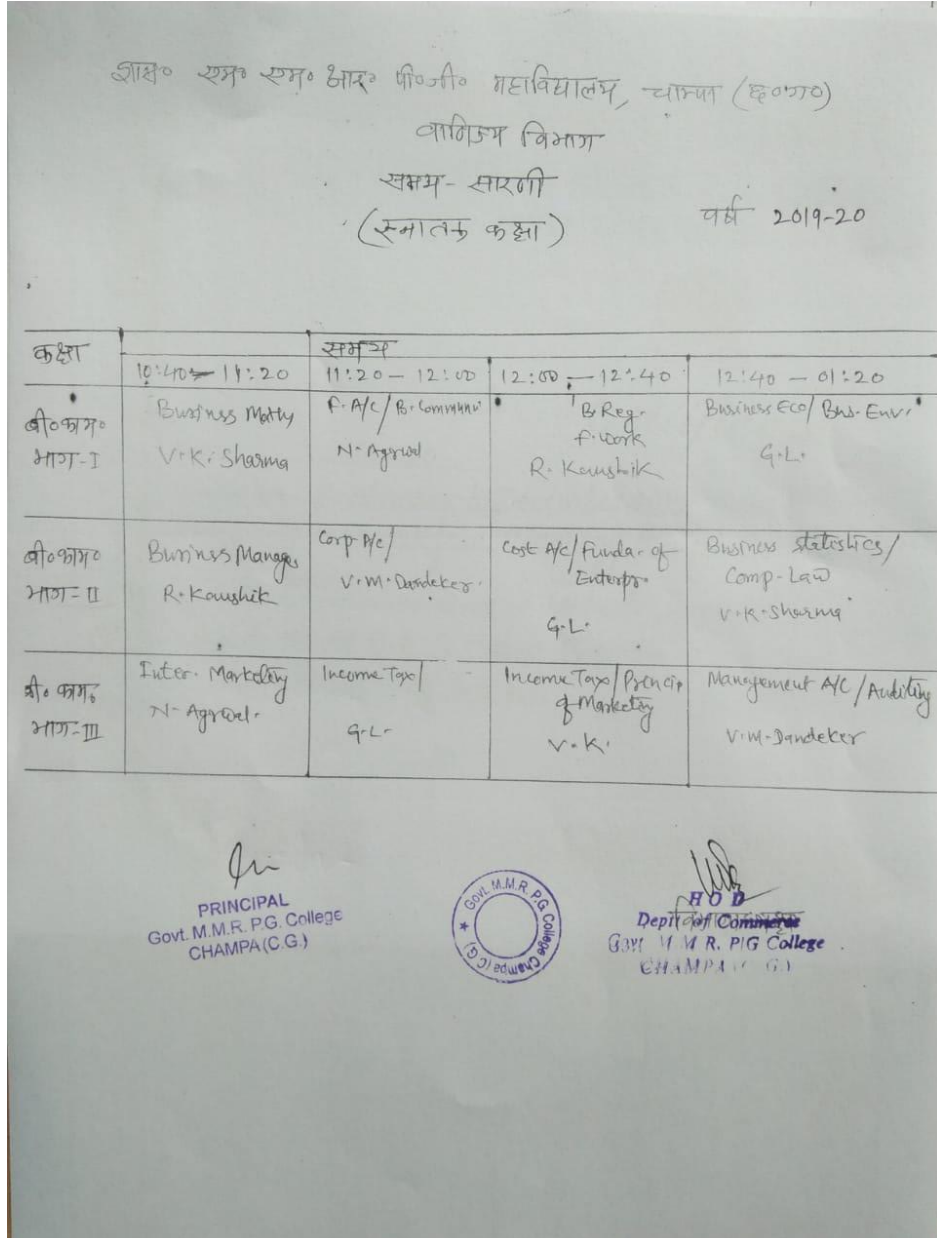 शास० एम० एम० आर० पी०जी० महाविद्यालय, चाम्पा (छ०ग०)
वाणिज्य विभाग
समय-सारणी
(स्नातक कक्षा)
वर्ष 2019-20
कक्षा
समय
10:40 — 11:20
11:20 — 12:00
12:00 — 12:40
12:40 — 01:20
बी०काम०
भाग-I
Business Maths
V.K. Sharma
F.A/c/ B. Communi
N. Agrwal
B. Reg.
f. work
R. Kaushik
Business Eco/ Bus. Env.
G.L.
बी०काम०
भाग-II
Business Manage
R. Kaushik
Corp A/c/
V.M. Dandeker.
Cost A/c/ Funda. of
Enterpr.
G.L.
Business statistics/
Comp. Law
V.K. Sharma
बी० काम०
भाग-III
Inter. Marketing
N. Agrwal.
Income Tax/
G.L.
Income Tax/ Princip
of Marketing
V.K.
Management A/C / Auditing
V.M. Dandeker
PRINCIPAL
Govt. M.M.R. P.G. College
CHAMPA (C.G.)
Govt. M.M.R. P.G. College Champa (C.G.)
H O D
Deptt of Commerce
Govt M M R. P.G College
CHAMPA (C.G.)